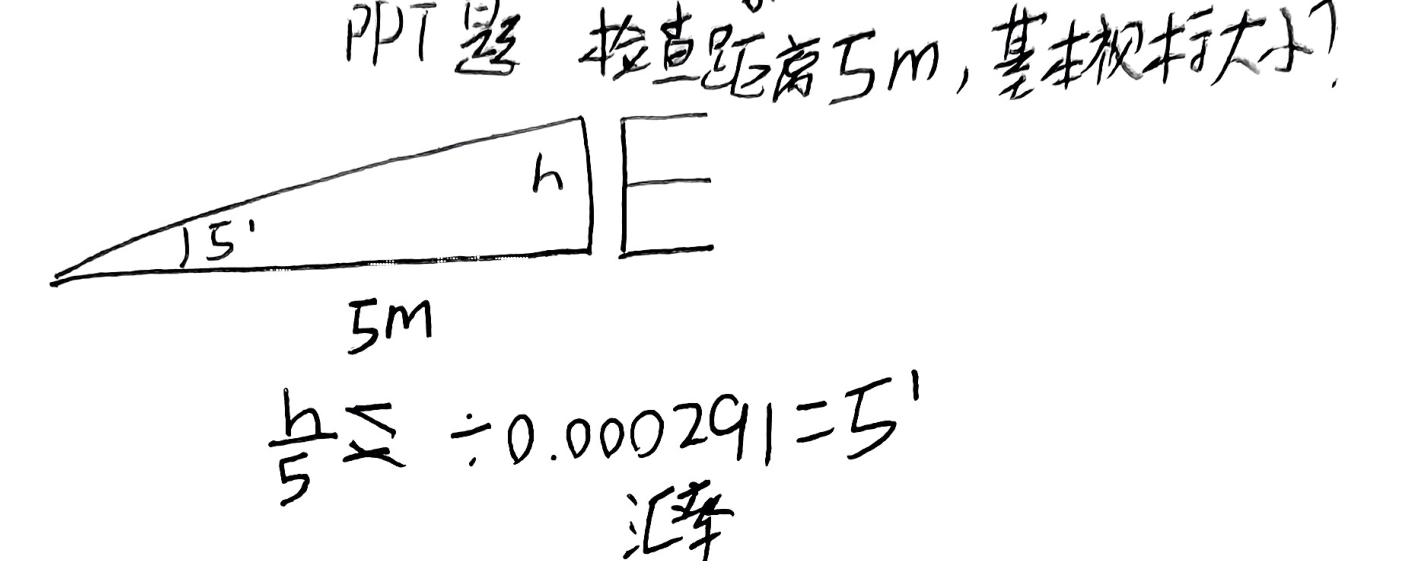 PPT题 检查距离5m,基本视标大小?
h
15'
5m
h/5 ≤ ÷0.000291=5'
汇率